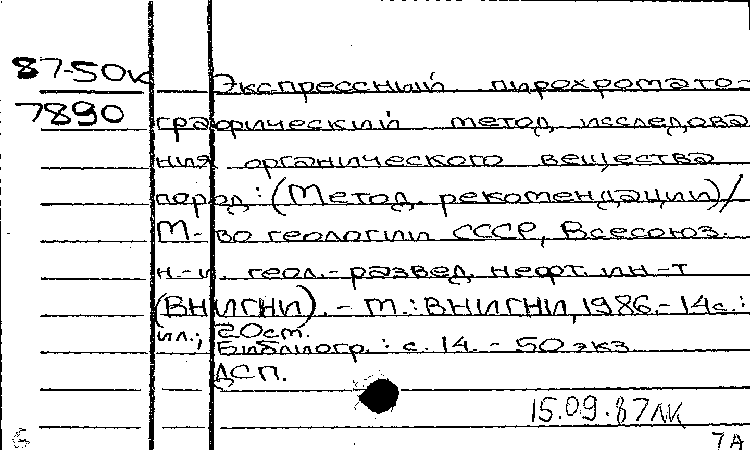 87-50к Экспрессный пирохромато-
7890 графический метод исследова
ния органического вещества
пород: (Метод. рекомендации)/
М-во геологии СССР, Всесоюз.
н-и. геол.-развед. нефт. ин-т
(ВНИГНИ). - М.: ВНИГНИ, 1986.-14с.:
ил.; 20см.
Библиогр.: с. 14. - 50 экз
ДСП.
15.09.87 ЛК
7А